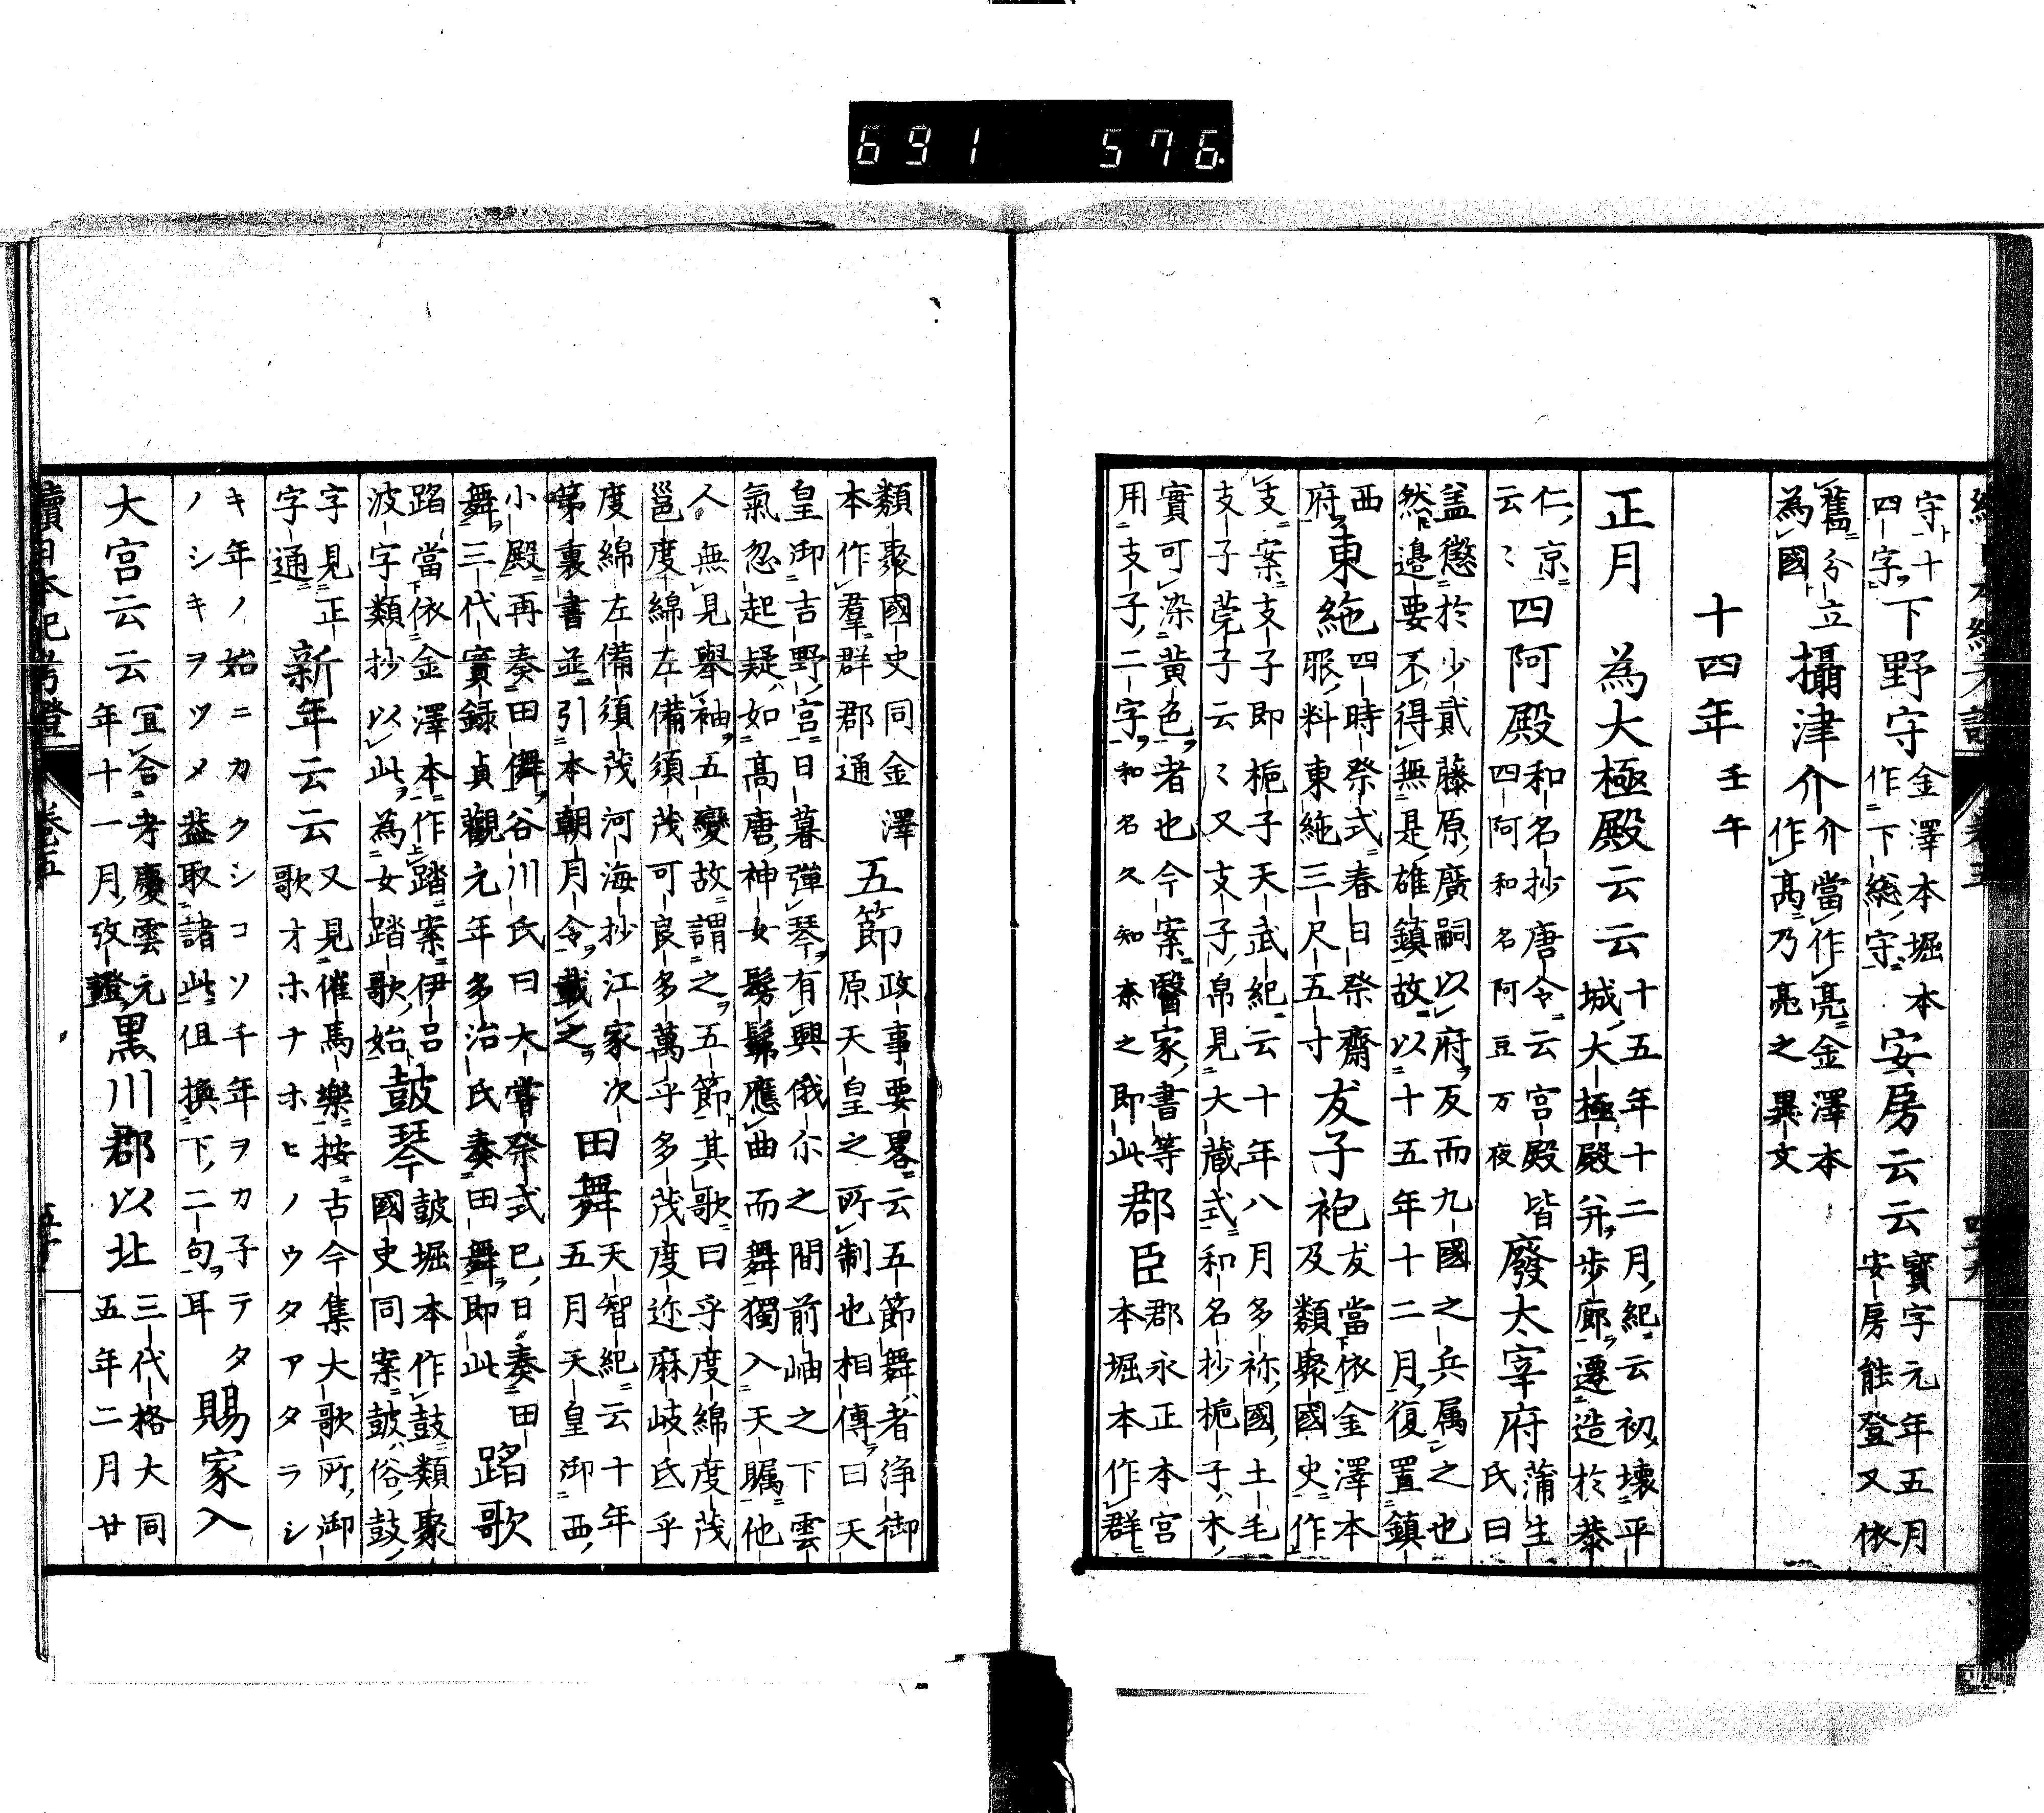 續日本紀考證 卷五 四十九
守十四字下野守金澤本堀本作下総守安房云云寶字元年五月安房能登又依
舊分立為國攝津介介當作亮金澤本作高乃亮之異文
十四年壬午
正月 為大極殿云云十五年十二月紀云初壞平城大極殿并步廊遷造於恭
仁京云〻四阿殿和名抄唐令云宮殿皆四阿和名阿豆万夜廢太宰府蒲生氏曰
盖懲於少貳藤原廣嗣以府反而九國之兵属之也然邉要不得無是雄鎮故以十五年十二月復置鎮
西府東絁四時祭式春日祭齋服料東絁三尺五寸友子袍友當依金澤本及類聚國史作
支案支子即梔子天武紀云十年八月多祢國土毛支子莞子云〻又支子帛見大藏式和名抄梔子木
實可染黄色者也今案醫家書等用支子二字和名久知奈之即此郡臣郡永正本宮本堀本作群
類聚國史同金澤本作羣群郡通五節政事要畧云五節舞者浄御原天皇之所制也相傳曰天
皇御吉野宮日暮彈琴有興俄尓之間前岫之下雲氣忽起疑如高唐神女髣髴應曲而舞獨入天矚他
人無見舉袖五變故謂之五節其歌曰乎度綿度茂邕度綿左備須茂可良多萬乎多茂度迩麻岐氐乎
度綿左備須茂河海抄江家次第裏書並引本朝月令載之田舞天智紀云十年五月天皇御西
小殿再奏田儛谷川氏曰大嘗祭式巳日奏田舞三代實録貞觀元年多治氏奏田舞即此蹈歌
蹈當依金澤本作踏案伊呂波字類抄以此為女踏歌始鼓琴鼓堀本作鼓類聚國史同案鼓俗鼓
字見正字通新年云云又見催馬樂按古今集大歌所御歌オホナホヒノウタアタラシ
キ年ノ始ニカクシコソ千年ヲカ子テタノシキヲツメ葢取諸此但換下二句耳賜家入
大宮云云宜合考慶雲元年十一月攷證黒川郡以北三代格大同五年二月廿
續日本紀考證 卷五 五十
691 576